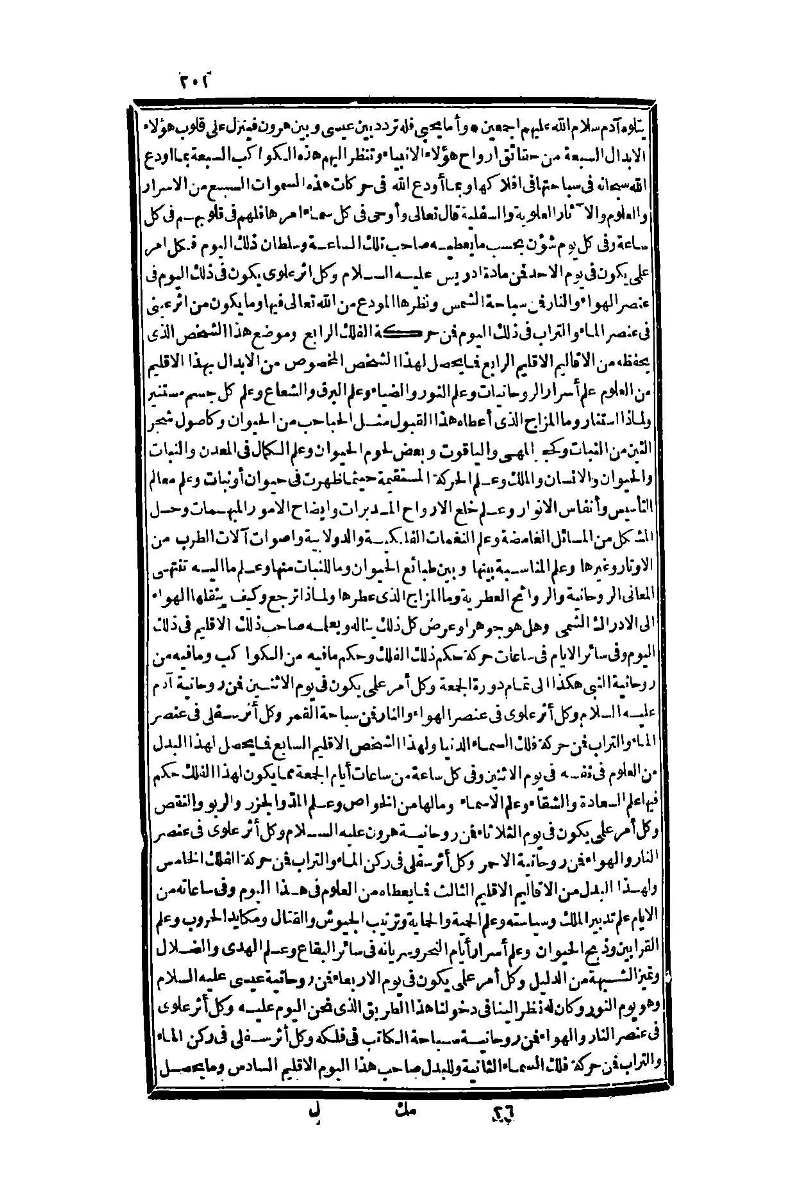 ٢٠١
يتلوه آدم سلام الله عليهم اجمعين * وأما يحيى فله تردد بين عيسى وبين هرون فينزل على قلوب هؤلاء
الابدال السبعة من حقائق ارواح هؤلاء الانبياء وتنظر اليهم هذه الكواكب السبعة بما اودع
الله سبحانه فى سباحتها فى افلاكها وبما أودع الله فى حركات هذه السموات السبع من الاسرار
والعلوم والآثار العلوية والسفلية قال تعالى وأوحى فى كل سماء امرها فلهم فى قلوبهم فى كل
ساعة وفى كل يوم شؤن بحسب ما يعطيه صاحب تلك الساعة وسلطان ذلك اليوم فكل امر
على يكون فى يوم الاحد فمن مادة ادريس عليه السلام وكل اثر علوى يكون فى ذلك اليوم فى
عنصر الهواء والنار فن سباحة الشمس ونظرها المودع من الله تعالى فيها وما يكون من اثر عينى
فى عنصر الماء والتراب فى ذلك اليوم فن حركة الفلك الرابع وموضع هذا الشخص الذى
يحفظه من الاقاليم الاقليم الرابع فما يحصل لهذا الشخص المخصوص من الابدال بهذا الاقليم
من العلوم علم أسرار الروحانيات وعلم النور والضياء وعلم البرق والشعاع وعلم كل جسم مستنير
ولماذا استنار وما المزاج الذى أعطاه هذا القبول مثل الحباحب من الحيوان وكاصول شجر
التين من النبات وكحجر المهى والياقوت وبعض لحوم الحيوان وعلم الكمال فى المعدن والنبات
والحيوان والانسان والملك وعلم الحركة المستقيمة حيثما ظهرت فى حيوان أو نبات وعلم معالم
التأسيس وأنفاس الانوار وعلم خلع الارواح المدبرات وايضاح الامور المبهمات وحل
المشكل من المسائل الغامضة وعلم النغمات الفلكية والدولابية واصوات آلات الطرب من
الاوتار وغيرها وعلم المناسبة بينها وبين طبائع الحيوان وما للنبات منها وعلم ما اليه تنتهى
المعانى الروحانية والروائح العطرية وما المزاج الذى عطرها ولماذا ترجع وكيف ينقلها الهواء
الى الادراك الشمى وهل هو جوهر او عرض كل ذلك يناله ويعلمه صاحب ذلك الاقليم فى ذلك
اليوم وفى سائر الايام فى ساعات حركة حكم ذلك الفلك وحكم ما فيه من الكواكب وما فيه من
روحانية النبى هكذا الى تمام دورة الجمعة وكل أمر على يكون فى يوم الاثنين فن روحانية آدم
عليه السلام وكل أثر علوى فى عنصر الهواء والنار فن سباحة القمر وكل أثر سفلى فى عنصر
الماء والتراب فن حركة فلك السماء الدنيا ولهذا الشخص الاقليم السابع فما يحصل لهذا البدل
من العلوم فى نفسه فى يوم الاثنين وفى كل ساعة من ساعات أيام الجمعة مما يكون لهذا الفلك حكم
فيها علم السعادة والشقاء وعلم الاسماء ومالها من الخواص وعلم المد والجزر والربو والنقص
وكل أمر على يكون فى يوم الثلاثاء فن روحانية هرون عليه السلام وكل أثر علوى فى عنصر
النار والهواء فن روحانية الاحمر وكل أثر سفلى فى ركن الماء والتراب فن حركة الفلك الخامس
ولهذا البدل من الاقاليم الاقليم الثالث فما يعطاه من العلوم فى هذا اليوم وفى ساعاته من
الايام علم تدبير الملك وسياسته وعلم الحمية والحماية وترتيب الجيوش والقتال ومكايد الحروب وعلم
القرابين وذبح الحيوان وعلم أسرار أيام النحر وسريانه فى سائر البقاع وعلم الهدى والضلال
وتميز الشبهة من الدليل وكل أمر على يكون فى يوم الاربعاء فن روحانية عيسى عليه السلام
وهو يوم النور وكان له نظر الينا فى دخولنا هذا الطريق الذى نحن اليوم عليه وكل أثر علوى
فى عنصر النار والهواء فن روحانية سباحة الكاتب فى فلكه وكل أثر سفلى فى ركن الماء
والتراب فن حركة فلك السماء الثانية وللبدل صاحب هذا اليوم الاقليم السادس وما يحصل
٢٦ مك ل